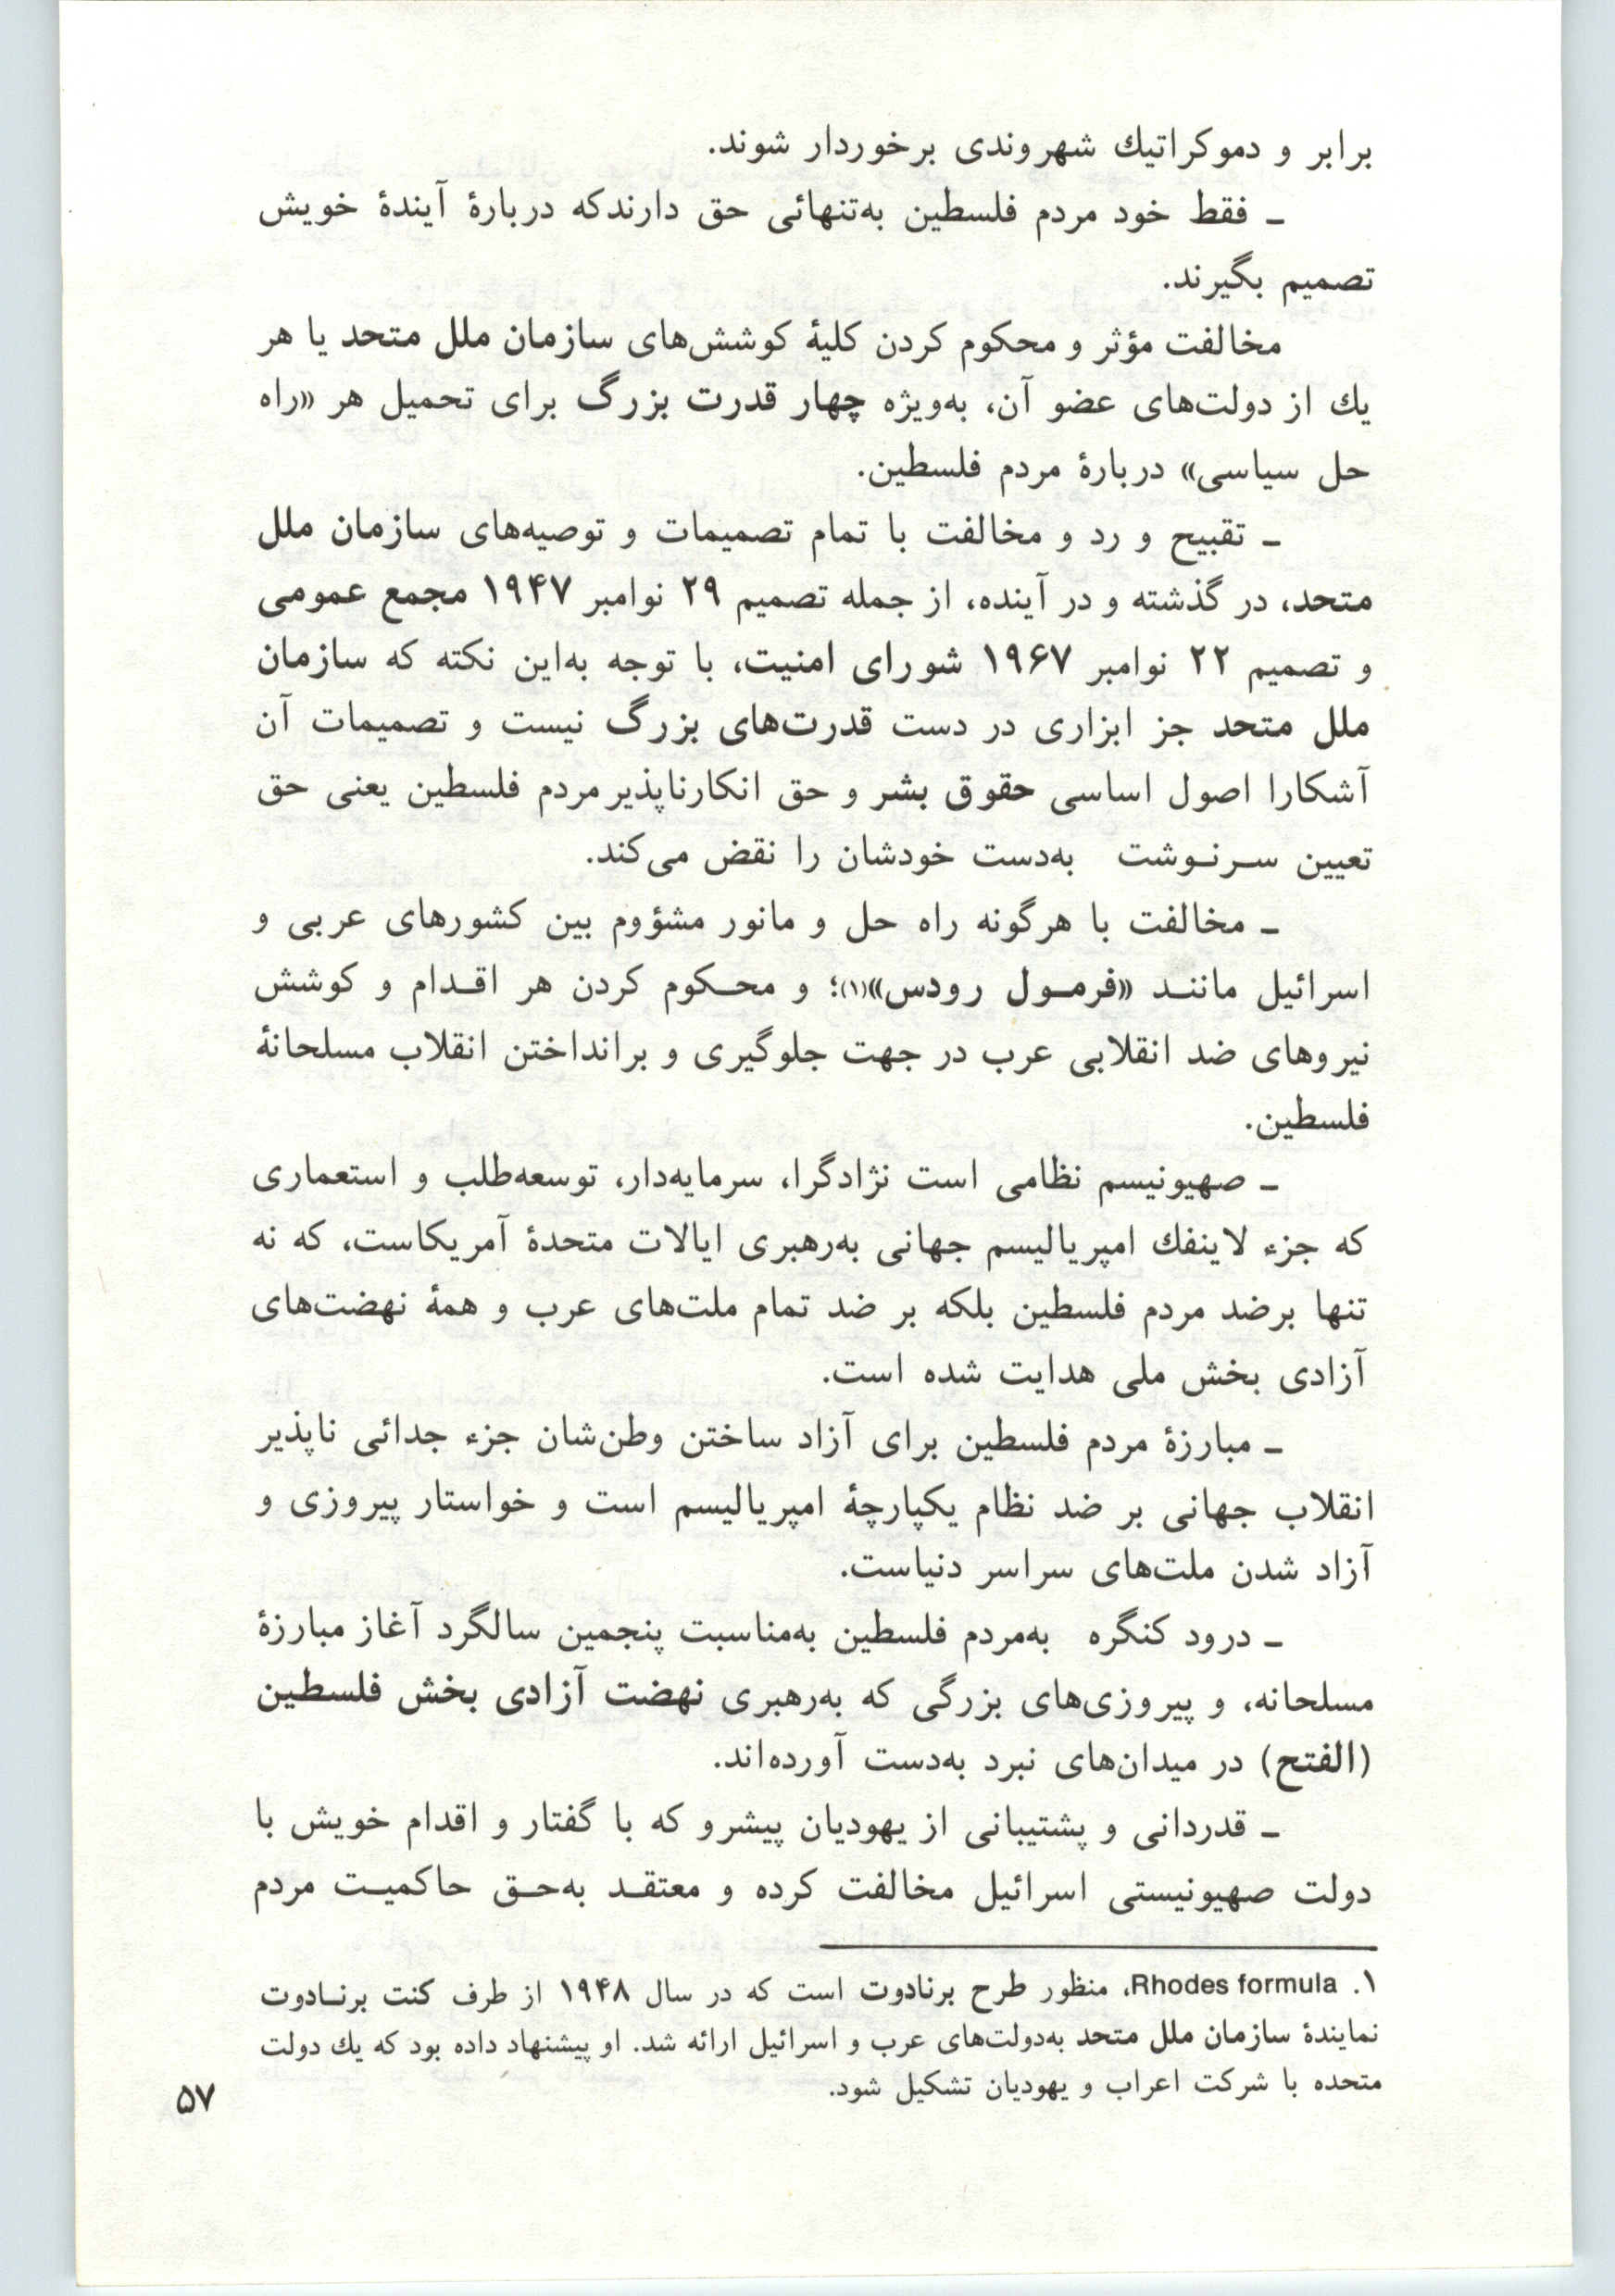 برابر و دموكراتيك شهروندی برخوردار شوند.
ـ فقط خود مردم فلسطین به‌تنهائی حق دارندكه دربارهٔ آیندهٔ خویش
تصمیم بگیرند.
مخالفت مؤثر و محکوم کردن کلیهٔ کوشش‌های سازمان ملل متحد یا هر
یك از دولت‌های عضو آن، به‌ویژه چهار قدرت بزرگ برای تحمیل هر «راه
حل سیاسی» دربارهٔ مردم فلسطین.
ـ تقبیح و رد و مخالفت با تمام تصمیمات و توصیه‌های سازمان ملل
متحد، در گذشته و در آینده، از جمله تصمیم ۲۹ نوامبر ۱۹۴۷ مجمع عمومی
و تصمیم ۲۲ نوامبر ۱۹۶۷ شورای امنیت، با توجه به‌این نکته که سازمان
ملل متحد جز ابزاری در دست قدرت‌های بزرگ نیست و تصمیمات آن
آشکارا اصول اساسی حقوق بشر و حق انکارناپذیر مردم فلسطین یعنی حق
تعیین سرنوشت به‌دست خودشان را نقض می‌کند.
ـ مخالفت با هرگونه راه حل و مانور مشؤوم بین کشورهای عربی و
اسرائیل مانند «فرمول رودس»(۱)؛ و محکوم کردن هر اقدام و کوشش
نیروهای ضد انقلابی عرب در جهت جلوگیری و برانداختن انقلاب مسلحانهٔ
فلسطین.
ـ صهیونیسم نظامی است نژادگرا، سرمایه‌دار، توسعه‌طلب و استعماری
که جزء لاینفك امپریالیسم جهانی به‌رهبری ایالات متحدهٔ آمریکاست، که نه
تنها برضد مردم فلسطین بلکه بر ضد تمام ملت‌های عرب و همهٔ نهضت‌های
آزادی بخش ملی هدایت شده است.
ـ مبارزهٔ مردم فلسطین برای آزاد ساختن وطن‌شان جزء جدائی ناپذیر
انقلاب جهانی بر ضد نظام یکپارچهٔ امپریالیسم است و خواستار پیروزی و
آزاد شدن ملت‌های سراسر دنیاست.
ـ درود کنگره به‌مردم فلسطین به‌مناسبت پنجمین سالگرد آغاز مبارزهٔ
مسلحانه، و پیروزی‌های بزرگی که به‌رهبری نهضت آزادی بخش فلسطین
(الفتح) در میدان‌های نبرد به‌دست آورده‌اند.
ـ قدردانی و پشتیبانی از یهودیان پیشرو که با گفتار و اقدام خویش با
دولت صهیونیستی اسرائیل مخالفت کرده و معتقد به‌حق حاکمیت مردم
۱. Rhodes formula، منظور طرح برنادوت است که در سال ۱۹۴۸ از طرف کنت برنادوت
نمایندهٔ سازمان ملل متحد به‌دولت‌های عرب و اسرائیل ارائه شد. او پیشنهاد داده بود که یك دولت
متحده با شرکت اعراب و یهودیان تشکیل شود.
۵۷